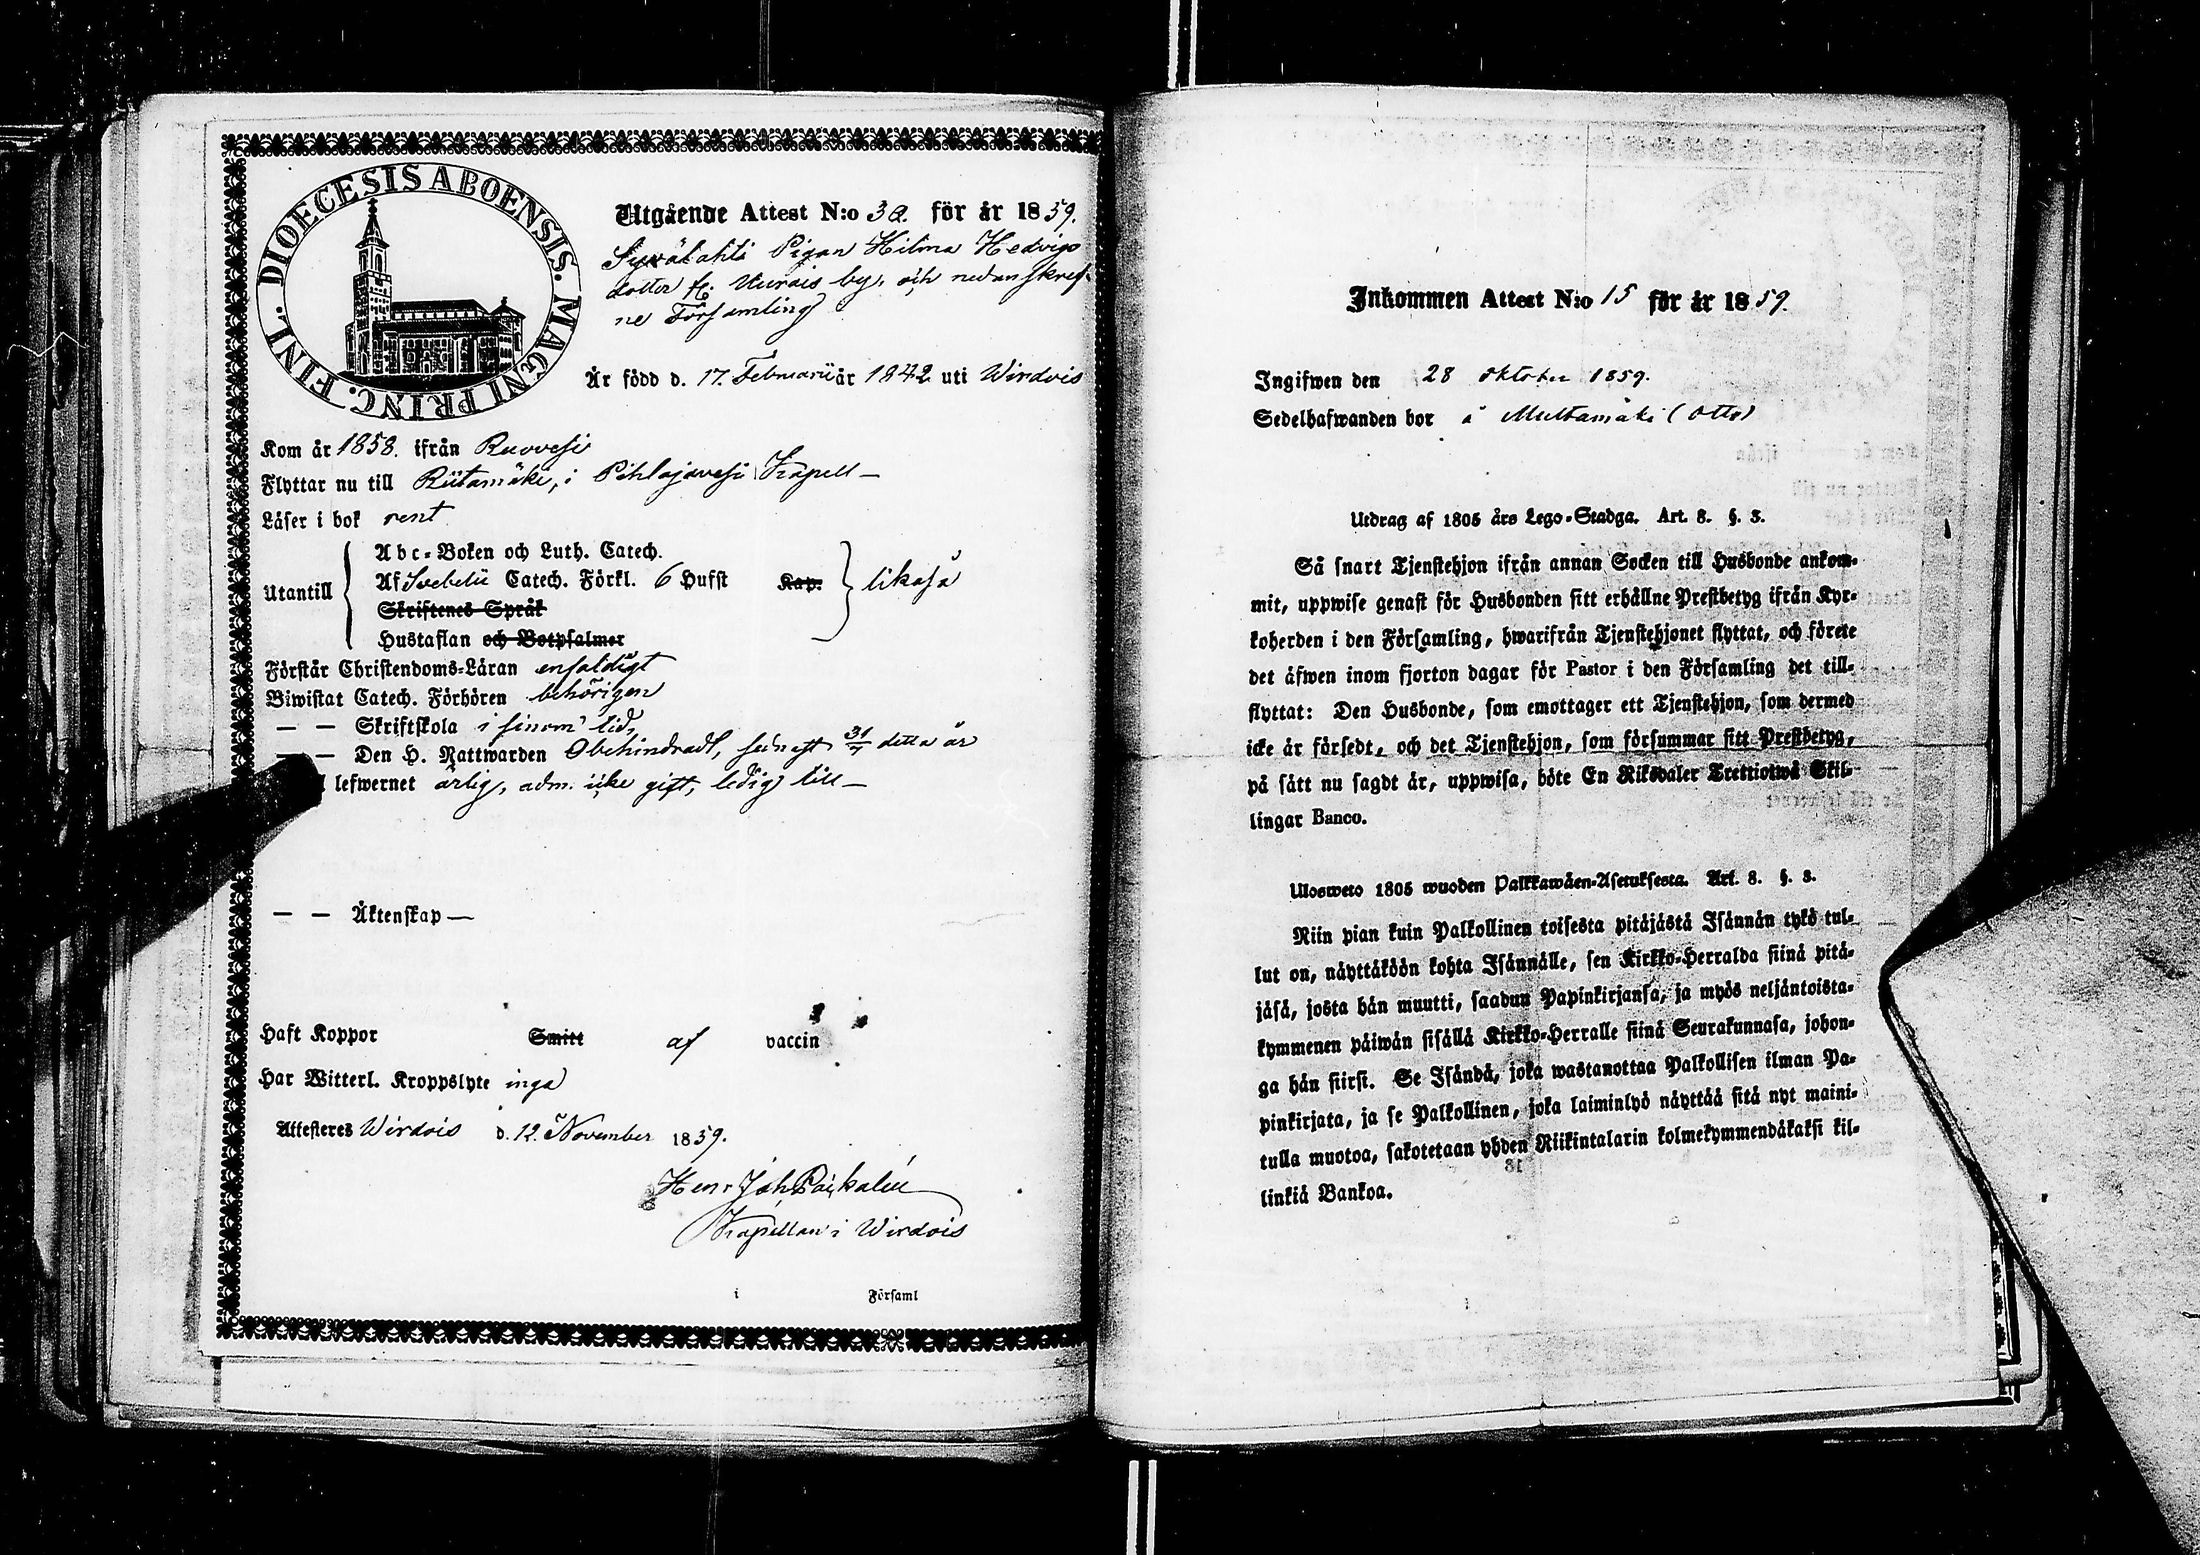 DIOECESIS ABOENSIS. MAGNI PRINC. FINL.
Utgående Attest N:o 30. för år 1859.
Pigan Hilma Hedvigs
dotter fr. by, och nedanskref-
ne Församling
Är född d. 17. Februarii år 1842 uti Wirdois
Kom år 1858. ifrån Ruovesi
Flyttar nu till Riitamäki, i Pihlajavesi Kapell —
Läser i bok rent
Utantill
Abc-Boken och Luth. Catech.
Af Svebelii Catech. Förkl. 6 Hufst Kap.
Skriftenes Språk
Hustaflan och Botpsalmer
likaså
Förstår Christendoms-Läran enfaldigt
Biwistat Catech. Förhören behörigen
— — Skriftskola i sinom tid,
— Den H. Nattwarden Obehindradt, senast detta år
lefwernet ärlig, adm. icke gift, ledig till —
— — Äktenskap —
Haft Koppor Smitt af vaccin
Har Witterl. Kroppslyte inga
Attesteres Wirdois d. 12. November 1859.
Henr. Joh.
Kapellan i Wirdois
i Församl
Inkommen Attest N:o 15 för år 1859.
Ingifwen den 28 oktober 1859.
Sedelhafwanden bor å Multamäki (Otto)
Utdrag af 1805 års Lego-Stadga. Art. 8. §. 3.
Så snart Tjenstehjon ifrån annan Socken till Husbonde ankom-
mit, uppwise genast för Husbonden sitt erhållne Prestbetyg ifrån Kyr-
koherden i den Församling, hwarifrån Tjenstehjonet flyttat, och förete
det äfwen inom fjorton dagar för Pastor i den Församling det till-
flyttat: Den Husbonde, som emottager ett Tjenstehjon, som dermed
icke är försedt, och det Tjenstehjon, som försummar sitt Prestbetyg,
på sätt nu sagdt är, uppwisa, böte En Riksdaler Trettiotwå Skil-
lingar Banco.
Ulosweto 1805 wuoden Palkkawäen-Asetuksesta. Art. 8. §. 3.
Niin pian kuin Palkollinen toisesta pitäjästä Isännän tykö tul-
lut on, näyttäköön kohta Isännälle, sen Kirkko-Herralda siinä pitä-
jäsä, josta hän muutti, saadun Papinkirjansa, ja myös neljäntoista-
kymmenen päiwän sisällä Kirkko-Herralle siinä Seurakunnasa, johon-
ga hän siirsi. Se Isändä, joka wastanottaa Palkollisen ilman Pa-
pinkirjata, ja se Palkollinen, joka laiminlyö näyttää sitä nyt maini-
tulla muotoa, sakotetaan yhden Riikintalarin kolmekymmendäkaksi kil-
linkiä Bankoa.